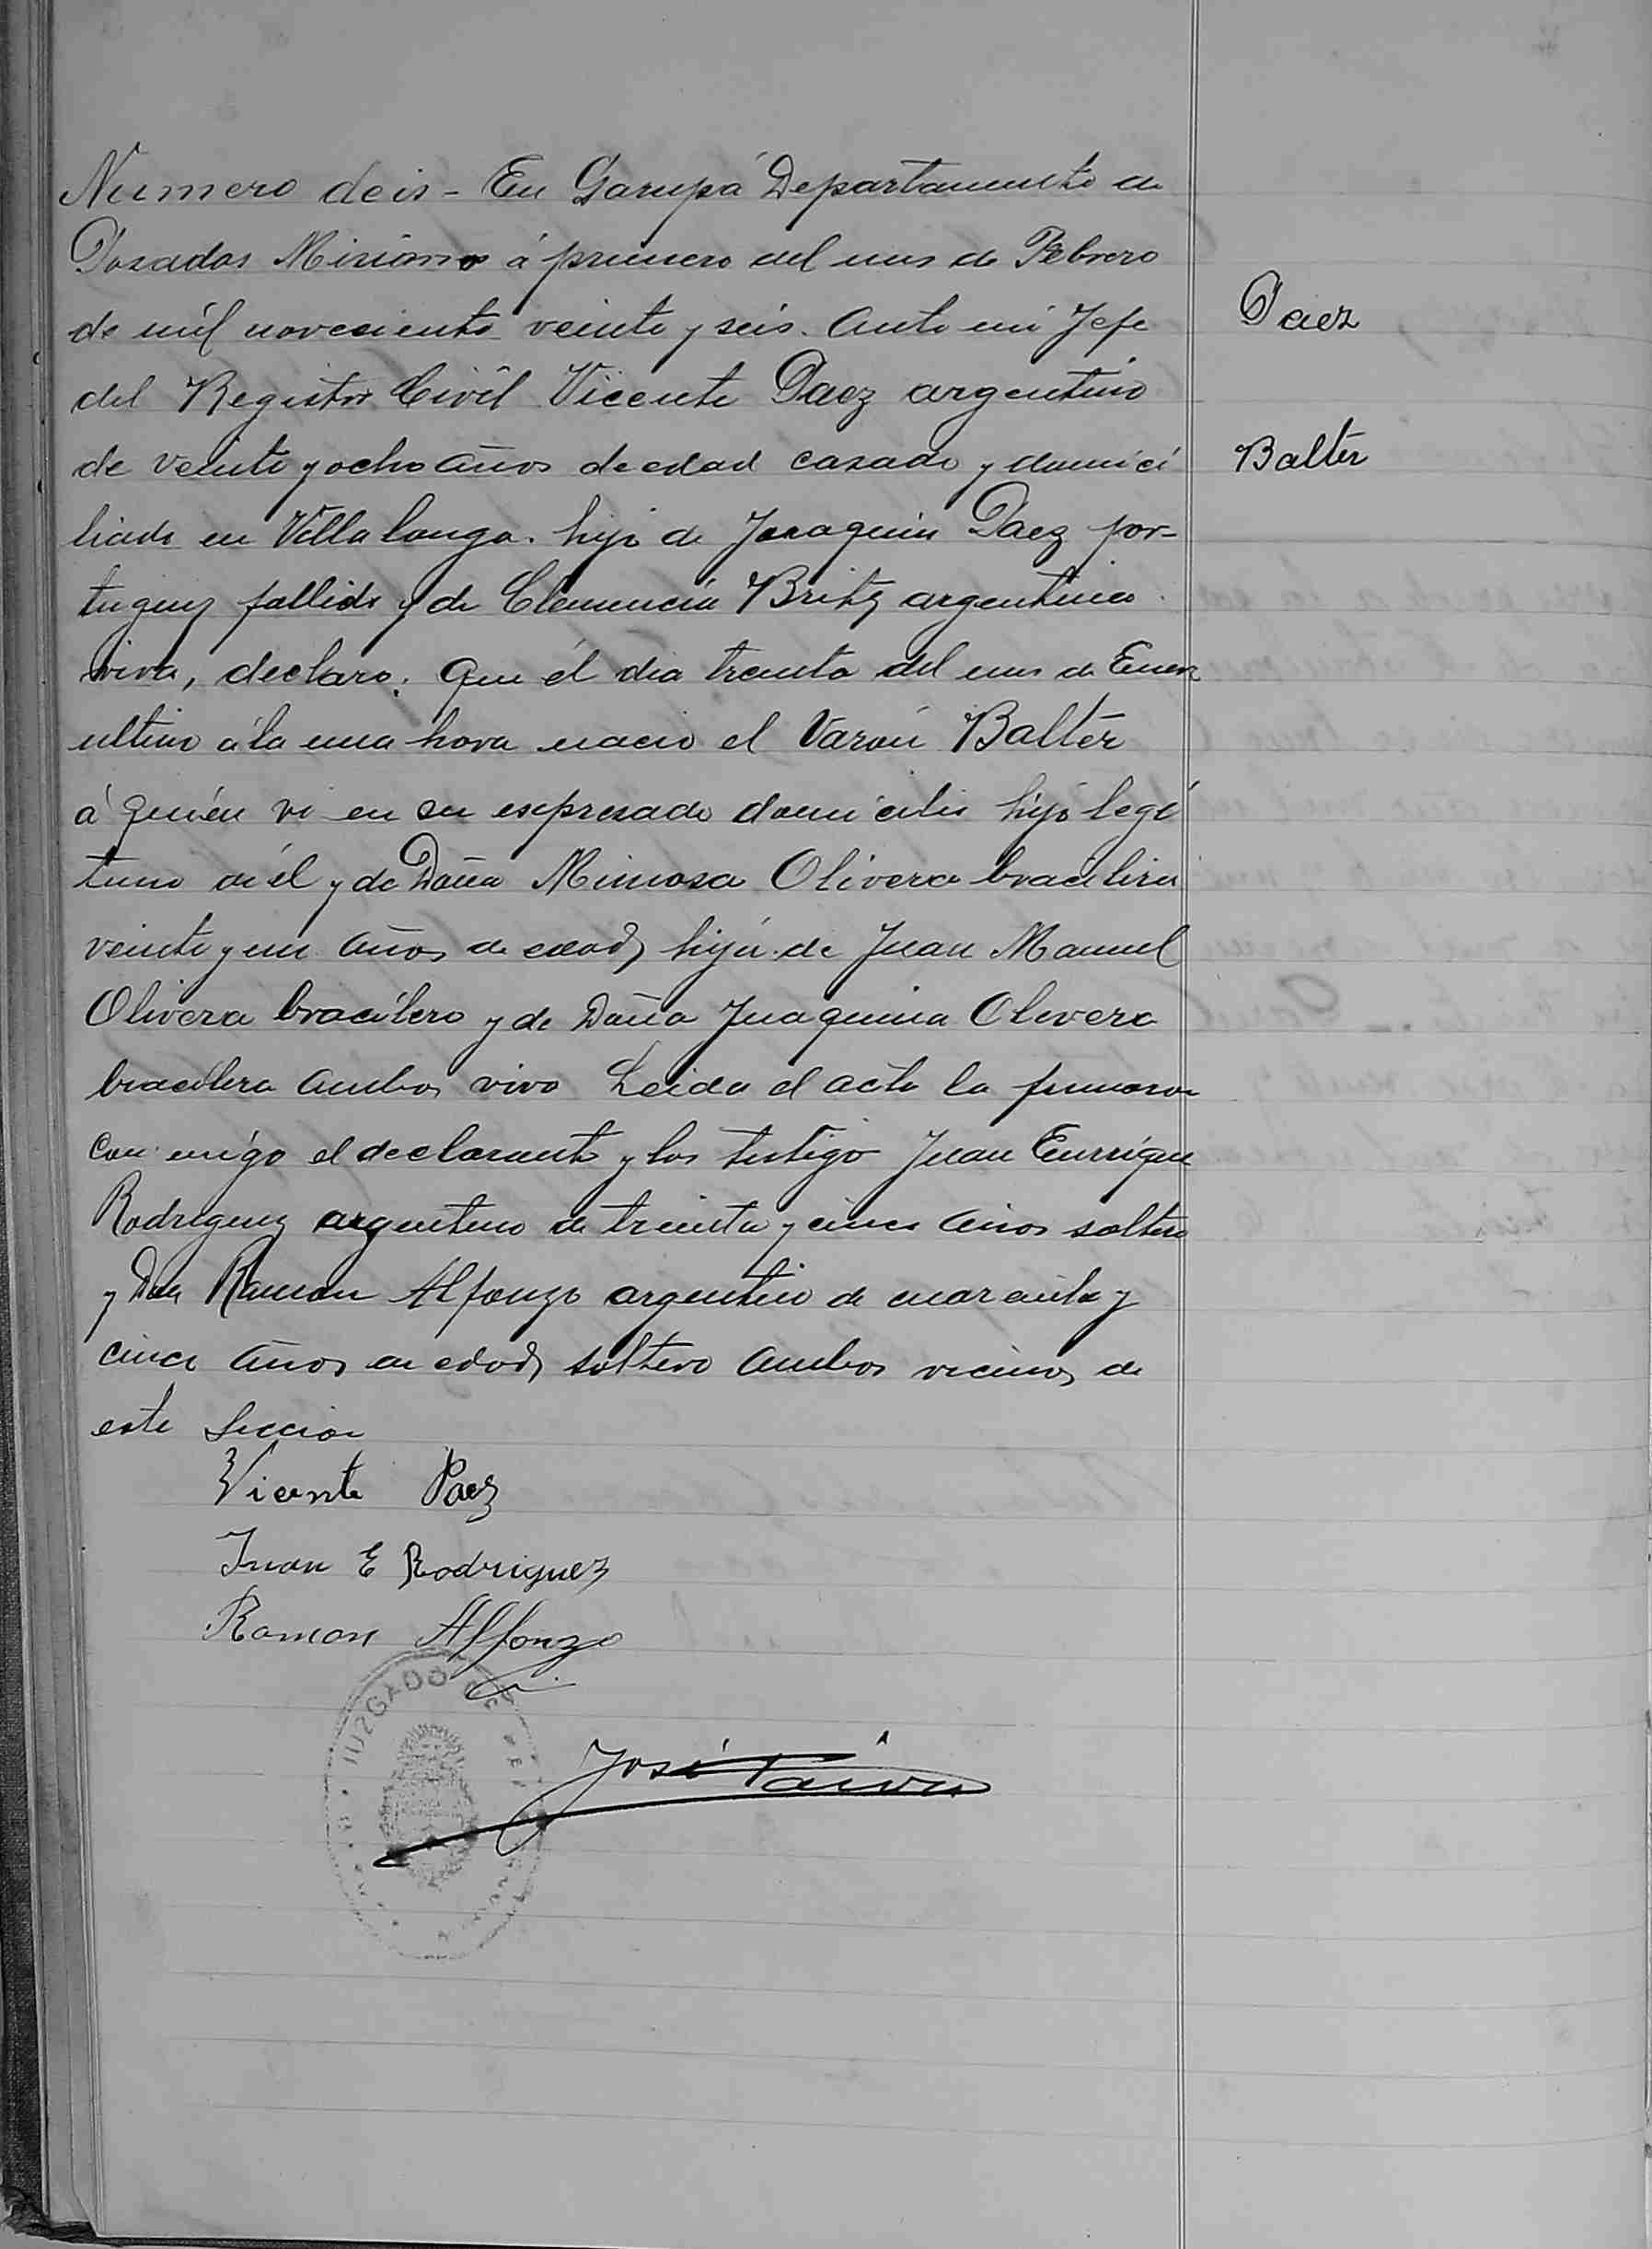 Numero deis - En Garupá Departamento de
Posadas Misiones á primero del mes de Febrero
de mil noveciento veinte y seis. Ante mi Jefe
del Registro Civil Vicente Paez argentino
de veinte y ocho años de edad casado y domici
liado en Villa longa. hijo de Joaaquin Paez por-
tuguez fallido y de Clemencia Britz argentina.
viva, declaro: Que él dia treinta del mes de Enero
ultimo á la una hora nacio el Varon Balter
á quién vi en su espresado domicilio hijo legi
timo de él y de Doña Mimosa Olivera bracilera
veinte y un años de edad, hija de Juan Manuel
Olivera bracilero y de Doña Juaquina Olivera
bracilera ambos vivo Leida el acta la firmaron
con migo el declarante y los testigo Juan Enrrique
Rodriguez argentino de treinta y cinco años soltero
y Don Ramon Alfonzo argentino de cuarenta y
cinco años de edad, soltero ambos vecinos de
este Seccion
Vicente Paez
Juan E Rodriguez
Ramon Alfonzo
JUZGADO DE
José Paiva
Paez
Balter